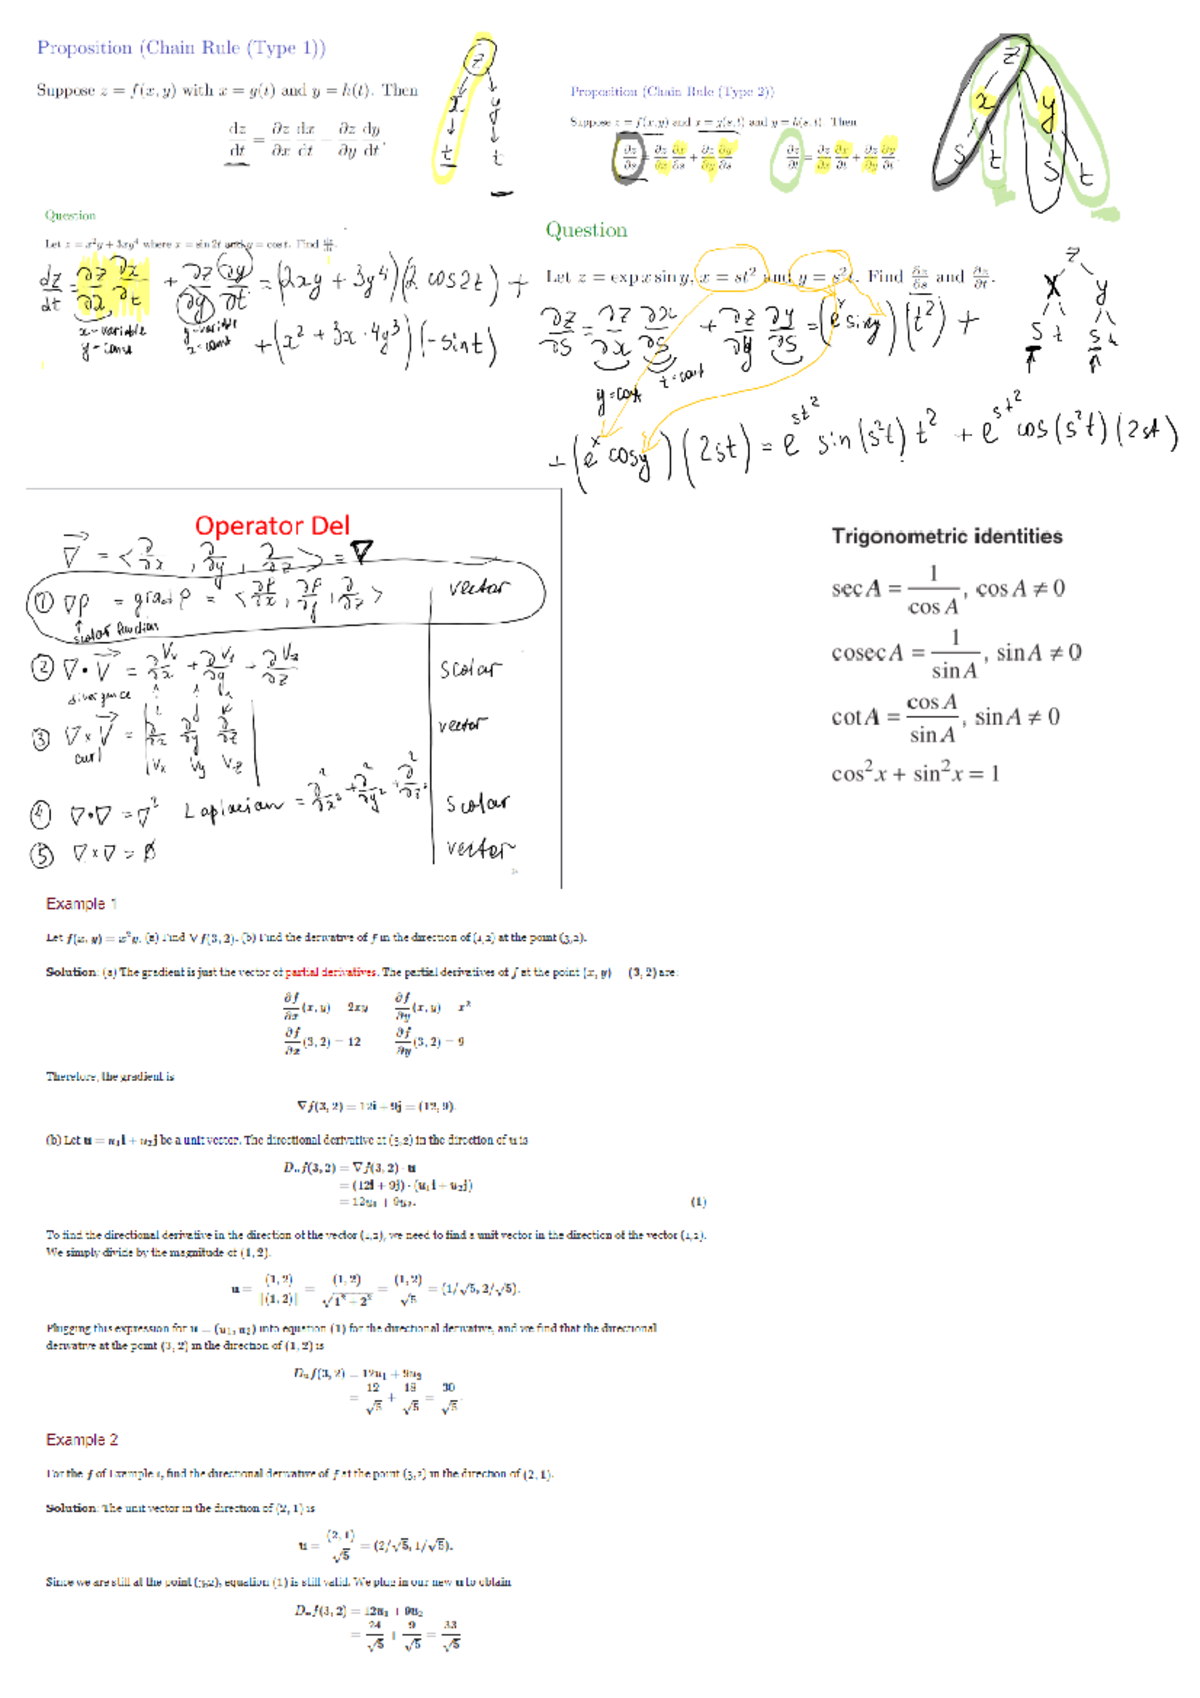 Proposition (Chain Rule (Type 1))
Suppose z = f(x, y) with x = g(t) and y = h(t). Then
dz/dt = ∂z/∂x dx/dt + ∂z/∂y dy/dt.
z
x y
t t
Proposition (Chain Rule (Type 2))
Suppose z = f(x, y) and x = g(s, t) and y = h(s, t). Then
∂z/∂s = ∂z/∂x ∂x/∂s + ∂z/∂y ∂y/∂s ∂z/∂t = ∂z/∂x ∂x/∂t + ∂z/∂y ∂y/∂t.
z
x y
s t s t
Question
Let z = x²y + 3xy⁴ where x = sin 2t and y = cos t. Find dz/dt.
dz/dt = ∂z/∂x ∂x/∂t + ∂z/∂y ∂y/∂t = (2xy + 3y⁴)(2 cos2t) +
x-variable y-variable
y-cons x-const
+ (x² + 3x·4y³)(-sint)
Question
Let z = exp x sin y, x = st² and y = s²t. Find ∂z/∂s and ∂z/∂t.
∂z/∂s = ∂z/∂x ∂x/∂s + ∂z/∂y ∂y/∂s = (eˣ siny)(t²) +
y=const t=const
z
x y
s t s t
+ (eˣ cosy)(2st) = e^st² sin(s²t) t² + e^st² cos(s²t)(2st)
Operator Del
∇ = <∂/∂x, ∂/∂y, ∂/∂z> = ∇
① ∇P = grad P = <∂P/∂x, ∂P/∂y, ∂/∂z> vector
scalar function
② ∇·V = ∂Vx/∂x + ∂Vy/∂y + ∂Vz/∂z scolar
divergence
③ ∇×V = | i j k | vector
curl | ∂/∂x ∂/∂y ∂/∂z |
| Vx Vy Vz |
④ ∇·∇ = ∇² Laplacian = ∂²/∂x² + ∂²/∂y² + ∂²/∂z² scolar
⑤ ∇×∇ = Ø vector
Trigonometric identities
sec A = 1/cos A, cos A ≠ 0
cosec A = 1/sin A, sin A ≠ 0
cot A = cos A/sin A, sin A ≠ 0
cos²x + sin²x = 1
Example 1
Let f(x, y) = x²y. (a) Find ∇f(3, 2). (b) Find the derivative of f in the direction of (1,2) at the point (3,2).
Solution: (a) The gradient is just the vector of partial derivatives. The partial derivatives of f at the point (x, y) = (3, 2) are:
∂f/∂x (x, y) = 2xy ∂f/∂y (x, y) = x²
∂f/∂x (3, 2) = 12 ∂f/∂y (3, 2) = 9
Therefore, the gradient is
∇f(3, 2) = 12i + 9j = (12, 9).
(b) Let u = u₁i + u₂j be a unit vector. The directional derivative at (3,2) in the direction of u is
Dᵤf(3, 2) = ∇f(3, 2) · u
= (12i + 9j) · (u₁i + u₂j)
= 12u₁ + 9u₂. (1)
To find the directional derivative in the direction of the vector (1,2), we need to find a unit vector in the direction of the vector (1,2).
We simply divide by the magnitude of (1, 2).
u = (1, 2)/|(1, 2)| = (1, 2)/√1² + 2² = (1, 2)/√5 = (1/√5, 2/√5).
Plugging this expression for u = (u₁, u₂) into equation (1) for the directional derivative, and we find that the directional
derivative at the point (3, 2) in the direction of (1, 2) is
Dᵤf(3, 2) = 12u₁ + 9u₂
= 12/√5 + 18/√5 = 30/√5.
Example 2
For the f of Example 1, find the directional derivative of f at the point (3,2) in the direction of (2, 1).
Solution: The unit vector in the direction of (2, 1) is
u = (2, 1)/√5 = (2/√5, 1/√5).
Since we are still at the point (3,2), equation (1) is still valid. We plug in our new u to obtain
Dᵤf(3, 2) = 12u₁ + 9u₂
= 24/√5 + 9/√5 = 33/√5